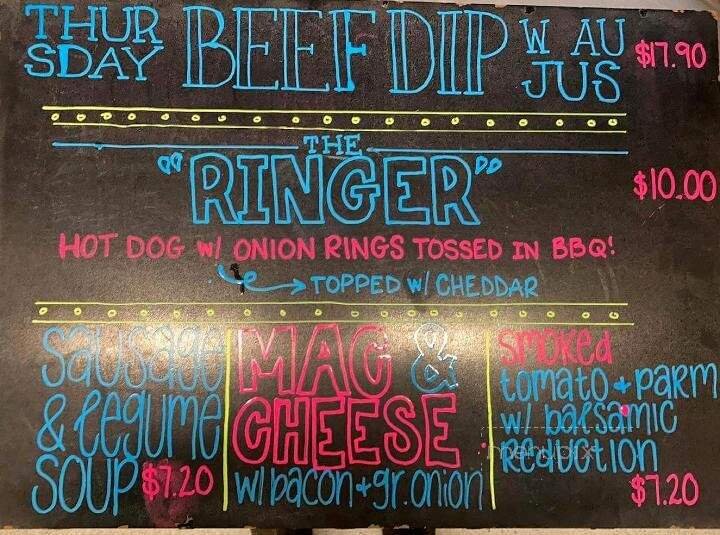 THURSDAY BEEF DIP W AU JUS $17.90
THE
"RINGER" $10.00
HOT DOG W/ ONION RINGS TOSSED IN BBQ!
TOPPED W/ CHEDDAR
Sausage
& Legume
SOUP $7.20
MAC &
CHEESE
w/ bacon + gr. onion
SMOKed
tomato + PARM
w/ balsamic
Reduction
$7.20
menupix